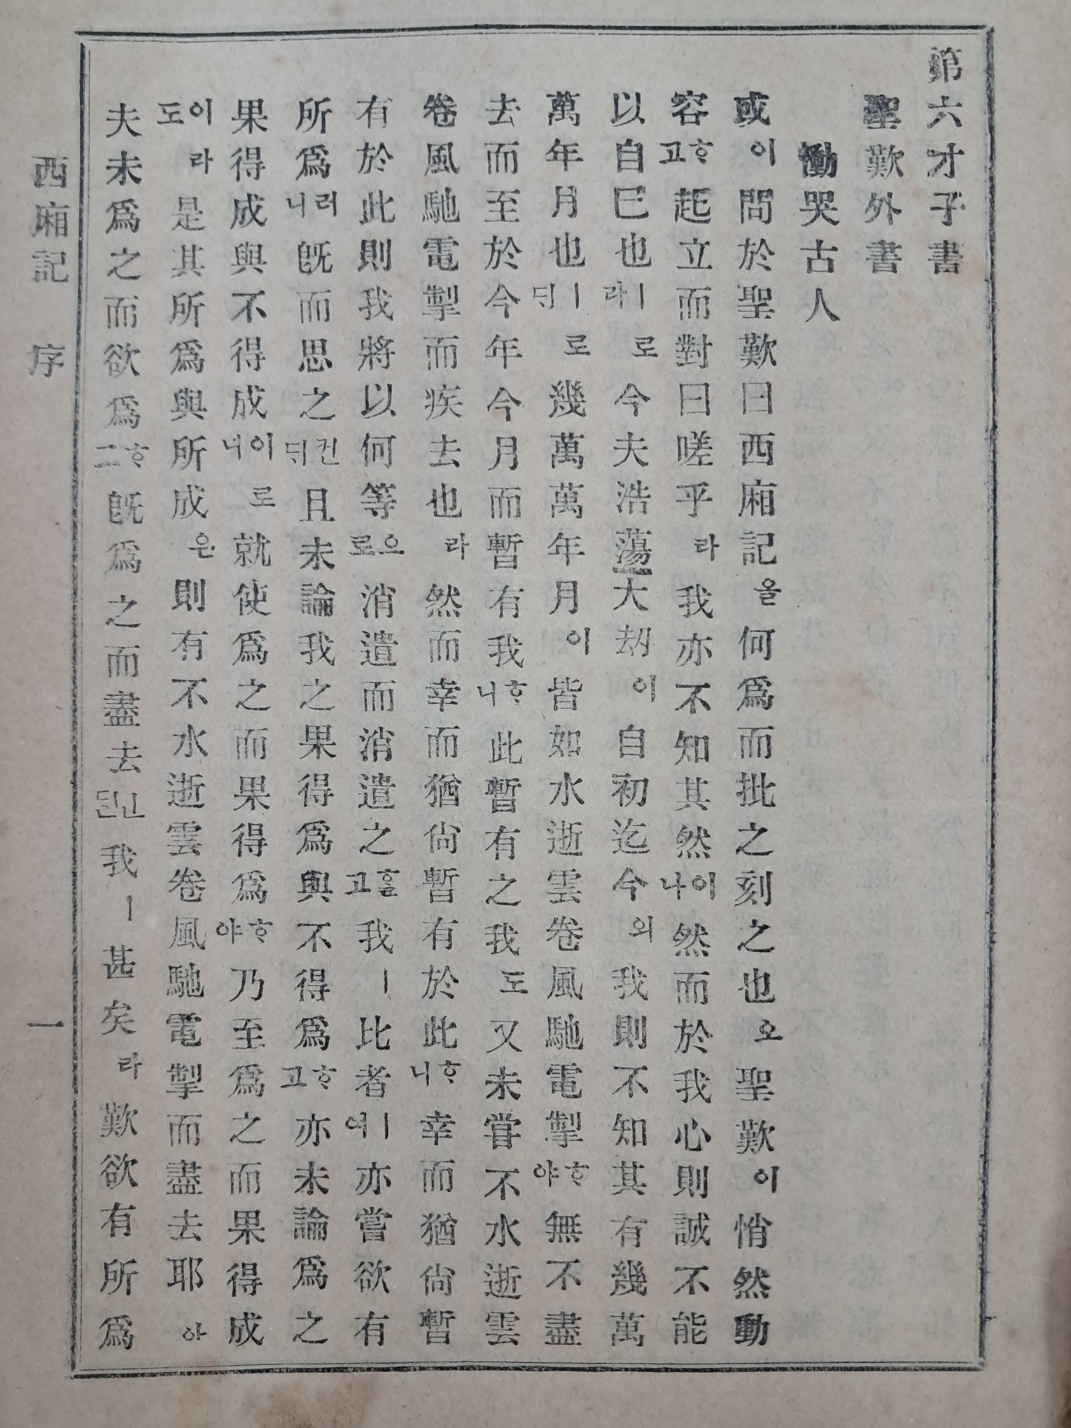 第六才子書
聖歎外書
慟哭古人
或이問於聖歎曰西廂記을何爲而批之刻之也오聖歎이悄然動
容ᄒᆞ고起立而對曰嗟乎라我亦不知其然이나然而於我心則誠不能
以自已也ㅣ라로今夫浩蕩大刼이自初迄今의我則不知其有幾萬
萬年月也ㅣ딘로幾萬萬年月이皆如水逝雲卷風馳電掣ᄒᆞ야無不盡
去而至於今年今月而暫有我ᄒᆞ니此暫有之我도又未甞不水逝雲
卷風馳電掣而疾去也라然而幸而猶尙暫有於此ᄒᆞ니幸而猶尙暫
有於此則我將以何等으로消遣而消遣之ᄒᆞᆯ고我ㅣ比者ㅣ예亦嘗欲有
所爲러니旣而思之컨ᄃᆡ且未論我之果得爲與不得爲ᄒᆞ고亦未論爲之
果得成與不得成이니로就使爲之而果得爲ᄒᆞ야乃至爲之而果得成
이도라是其所爲與所成은則有不水逝雲卷風馳電掣而盡去耶아
夫未爲之而欲爲ᄒᆞ고旣爲之而盡去ᄂᆞ니我ㅣ甚矣라歎欲有所爲
西廂記 序 一